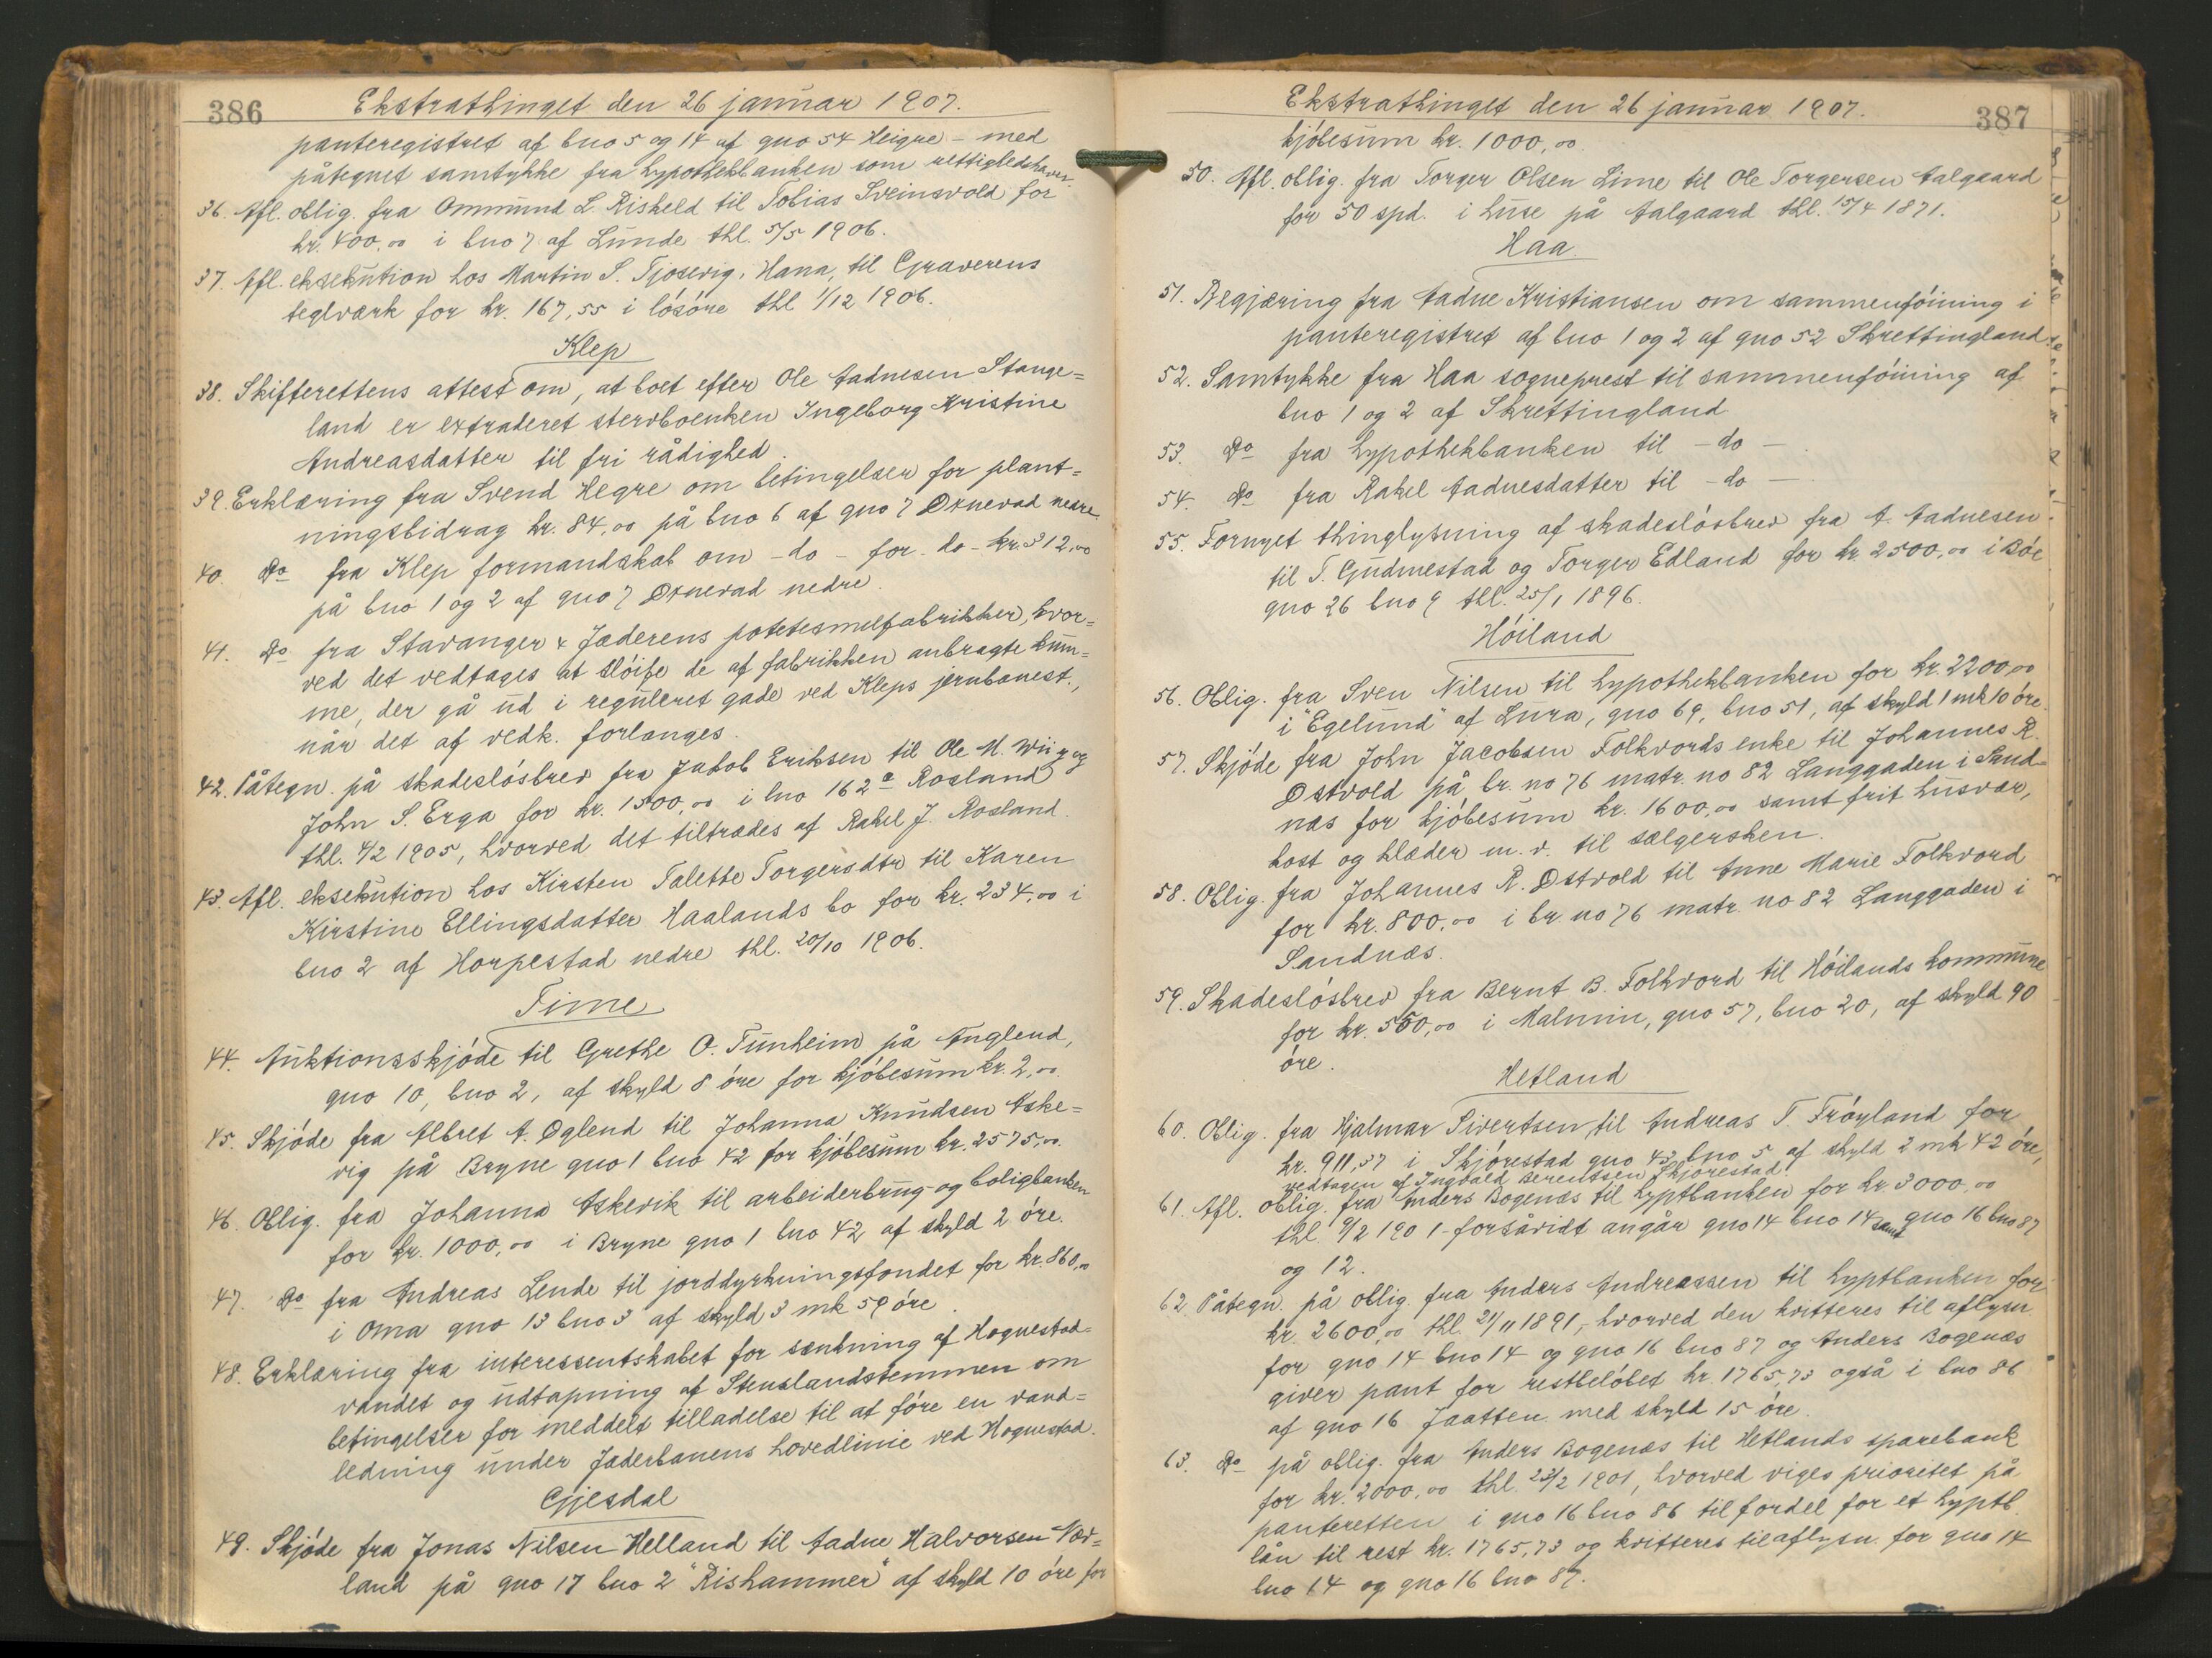 386
Ekstrathinget den 26 januar 1907.
panteregistret af bno 5 og 14 af gno 54 Heigre - med
påtegnet samtykke fra hypothekbanken som rettighedshaver.
36. Afl. oblig. fra Ommund L. Riskeld til Tobias Sveinsvold for
kr. 400,00 i bno 7 af Lunde thl. 5/5 1906.
37. Afl. eksekution hos Martin S. Tjosevig, Hana, til Graverens
teglværk for kr. 167,55 i lösöre thl 1/12 1906.
Klep
38. Skifterettens attest om, at boet efter Ole Aadnesen Stange=
land er extraderet stervboenken Ingeborg Kristine
Andreasdatter til fri rådighed.
39. Erklæring fra Svend Hegre om betingelser for plant=
ningsbidrag kr. 84,00 på bno 6 af gno 7 Ornevad nedre.
40. Do fra Klep formandskab om - do - for - do - kr. 312,00
på bno 1 og 2 af gno 7 Ornevad nedre.
41. Do fra Stavanger & Jæderens potetesmelfabrikker, hvor=
ved det vedtages at slöife de af fabrikken anbragte kum=
me, der gå ud i reguleret gade ved Kleps jernbanest.,
når det af vedk. forlanges.
42. Påtegn. på skadeslösbrev fra Jakob Eriksen til Ole M. Wiig og
John S. Erga for kr. 1500,00 i bno 162 a Rosland
thl. 4/2 1905, hvorved det tiltrædes af Rakel J. Rosland.
43. Afl. eksekution hos Kirsten Talette Torgersdtr til Karen
Kirstine Ellingsdatter Haalands bo for kr. 234,00 i
bno 2 af Horpestad nedre thl. 20/10 1906.
Time
44. Auktionsskjöde til Grethe O. Tunheim på Auglend,
gno 10, bno 2, af skyld 8 öre for kjöbesum kr. 2,00.
45. Skjöde fra Albret A. Oglend til Johanna Knudsen Aske=
vig på Bryne gno 1 bno 42 for kjöbesum kr. 2575,00.
46. Oblig. fra Johanna Askevik til arbeiderbrug- og boligbanken
for kr. 1000,00 i Bryne gno 1 bno 42 af skyld 2 öre.
47. Do fra Andreas Lende til jorddyrkningsfondet for kr. 860,00
i Oma gno 13 bno 3 af skyld 3 mk 59 öre.
48. Erklæring fra interessentskabet for sænkning af Hognestad=
vandet og udtapning af Stenslandstemmen om
betingelser for meddelt tilladelse til at före en vand=
ledning under Jæderbanens hovedlinie ved Hognestad.
Gjesdal
49. Skjöde fra Jonas Nilsen Helland til Aadne Halvorsen Vær=
land på gno 17 bno 2 "Rishammer" af skyld 10 öre for
Ekstrathinget den 26 januar 1907.
387
kjöbesum kr. 1000,00.
50. Afl. oblig. fra Torger Olsen Lime til Ole Torgersen Aalgaard
for 50 spd. i huse på Aalgaard thl. 15/4 1871.
Haa.
51. Begjæring fra Aadne Kristiansen om sammenföining i
panteregistret af bno 1 og 2 af gno 52 Skrettingland.
52. Samtykke fra Haa sogneprest til sammenföining af
bno 1 og 2 af Skrettingland
53. Do fra hypothekbanken til - do -
54. Do fra Rakel Aadnesdatter til - do -
55. Fornyet thinglysning af skadeslösbrev fra A. Aadnesen
til T. Gudmestad og Torger Edland for kr. 2500,00 i Böe
gno 26 bno 9 thl. 25/1 1896.
Höiland
56. Oblig. fra Sven Nilsen til hypothekbanken for kr. 2200,00
i "Egelund" af Lura, gno 69, bno 51, af skyld 1 mk 10 öre.
57. Skjöde fra John Jacobsen Folkvords enke til Johannes R.
Ostvold på br. no 76 matr. no 82 Langgaden i Sand=
næs for kjöbesum kr. 1600,00 samt frit husvær,
kost og klæder m. v. til sælgersken.
58. Oblig. fra Johannes R. Ostvold til Anne Marie Folkvord
for kr. 800,00 i br. no 76 matr. no 82 Langgaden i
Sandnæs.
59. Skadeslösbrev fra Bernt B. Folkvord til Höilands kommune
for kr. 550,00 i Malmin, gno 57, bno 20, af skyld 90
öre.
Hetland
60. Oblig. fra Hjalmar Sivertsen til Andreas T. Fröyland for
kr. 911,37 i Skjörestad gno 43 bno 5 af skyld 2 mk 42 öre,
vedtagen af Ingvald Berentsen Skjörestad.
61. Afl. oblig. fra Anders Bogenæs til hyptbanken for kr. 3000,00
thl. 9/2 1901 - forsåvidt angår gno 14 bno 14 samt gno 16 bno 87
og 12.
62. Påtegn. på oblig. fra Anders Andreassen til hyptbanken for
kr. 2600,00 thl. 21/11 1891, hvorved den kvitteres til aflysn
for gno 14 bno 14 og gno 16 bno 87 og Anders Bogenæs
giver pant for restbelöbet kr. 1765,73 også i bno 86
af gno 16 Jaatten med skyld 15 öre.
63. Do på oblig. fra Anders Bogenæs til Hetlands sparebank
for kr. 2000,00 thl. 23/2 1901, hvorved viges prioritet på
panteretten i gno 16 bno 86 til fordel for et hyptb.
lån til rest kr. 1765,73 og kvitteres til aflysn. for gno 14
bno 14 og gno 16 bno 87.